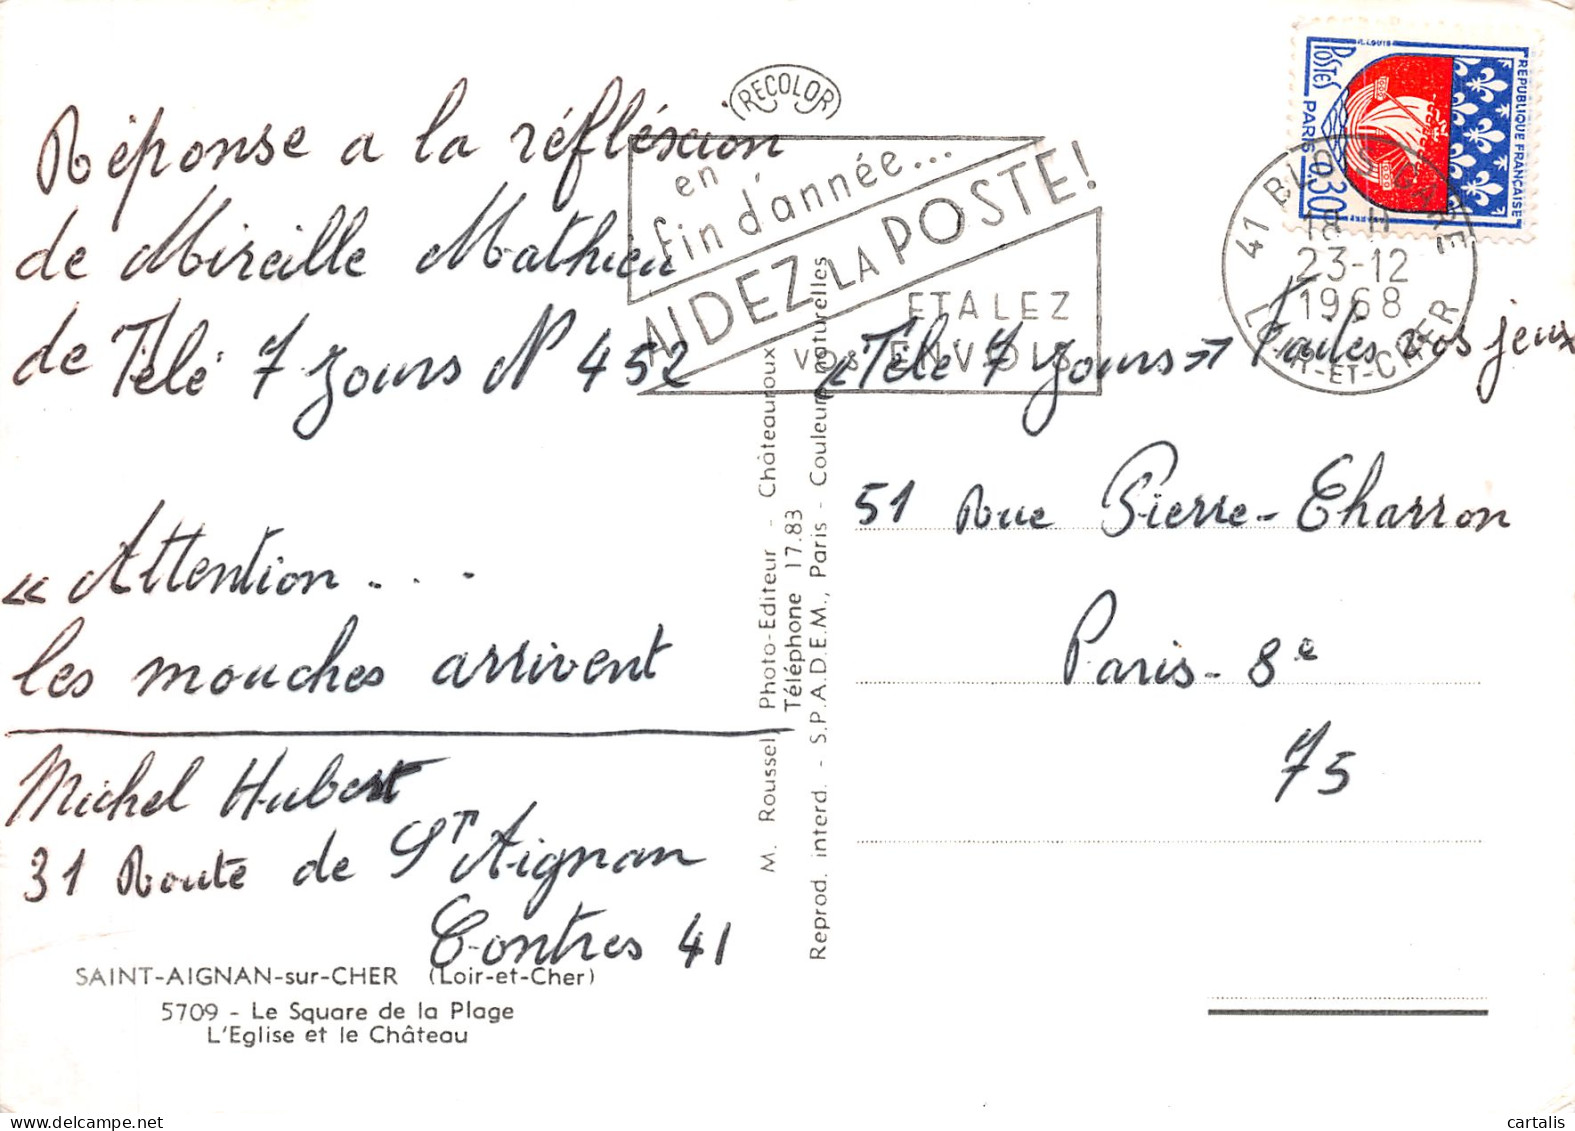 RECOLOR
Réponse a la réfléxion
de Mireille Mathieu
de Télé 7 Jours N 452
« Attention . . .
les mouches arrivent
Michel Hubert
31 Route de St Aignan
Contres 41
SAINT-AIGNAN-sur-CHER (Loir-et-Cher)
5709 - Le Square de la Plage
L'Eglise et le Château
M. Roussel, Photo-Editeur - Châteauroux
Téléphone 17.83
Reprod. interd. - S.P.A.D.E.M., Paris - Couleurs naturelles
en
fin d'année...
AIDEZ LA POSTE!
ETALEZ
VOS ENVOIS
POSTES
R.LOUIS
REPUBLIQUE FRANÇAISE
PARIS 0,30
41 BLOIS GARE
18 H
23-12
1968
LOIR-ET-CHER
« Télé 7 Jours » Faites vos jeux
51 Rue Pierre-Charron
Paris - 8e
75
cartalis delcampe.net